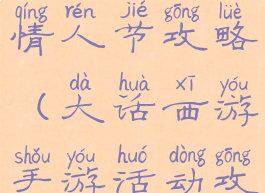 qíng rén jié gōng lüè
情人节攻略
dà huà xī yóu
（大话西游
shǒu yóu huó dòng gōng
手游活动攻